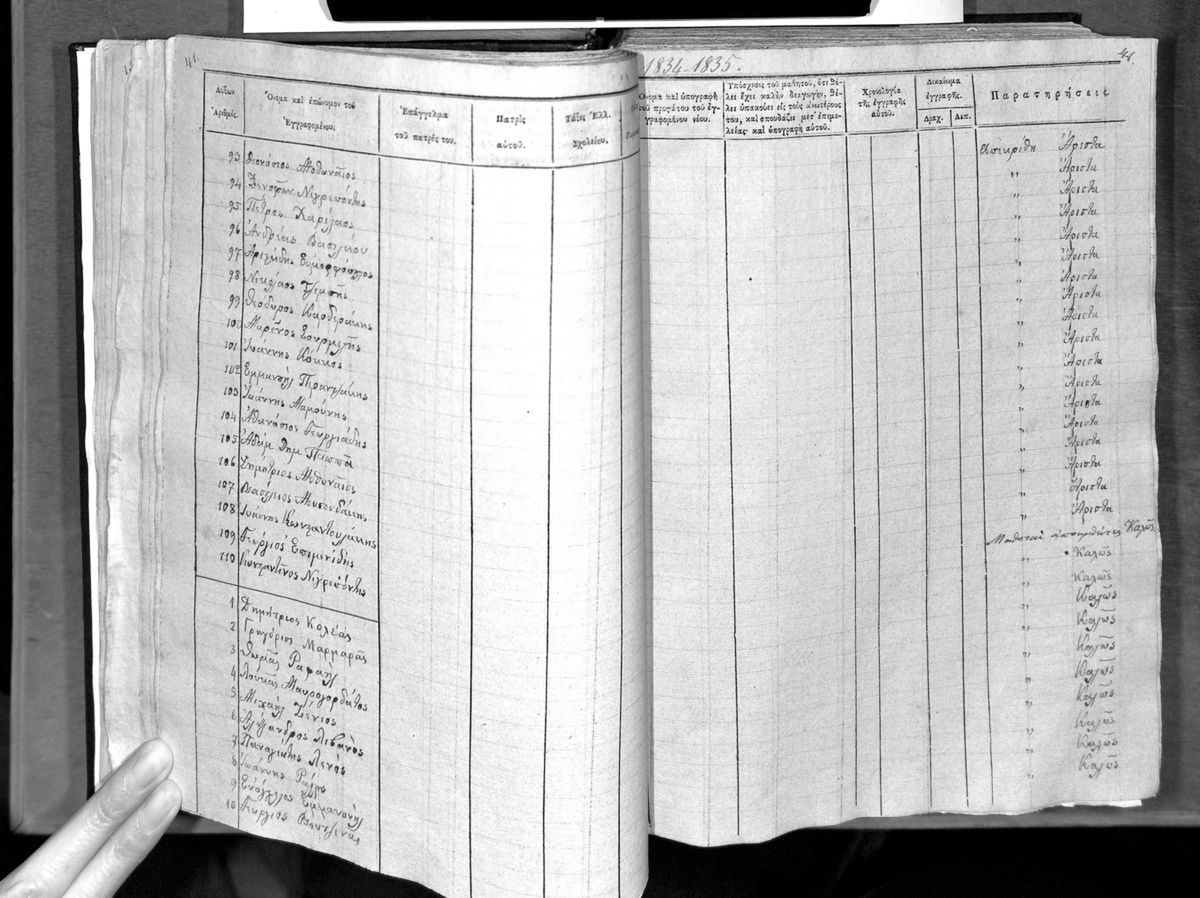 41.
1834-1835.
41.
Αὔξων Ἀριθμός.
Ὄνομα καὶ ἐπώνυμον τοῦ Ἐγγραφομένου.
Ἐπάγγελμα τοῦ πατρός του.
Πατρὶς αὐτοῦ.
Τάξις Ἑλλ. Σχολείου.
Ὄνομα καὶ ὑπογραφὴ τοῦ προστάτου τοῦ ἐγγραφομένου νέου.
Ὑπόσχεσις τοῦ μαθητοῦ, ὅτι θέλει ἔχει καλὴν διαγωγὴν, θέλει ὑπακούει εἰς τοὺς ἀνωτέρους του, καὶ σπουδάζει μετ' ἐπιμελείας· καὶ ὑπογραφὴ αὐτοῦ.
Χρονολογία τῆς ἐγγραφῆς αὐτοῦ.
Δικαίωμα ἐγγραφῆς.
Δραχ. Λεπ.
Παρατηρήσεις.
93 Διονύσιος Μοθωναῖος ἀπεκρίθη Ἄριστα
94 Ξενοφῶν Νιγρεπόντης " Ἄριστα
95 Πέτρος Χαρίλαος " Ἄριστα
96 Ἀνδρέας Βασιλείου " Ἄριστα
97 Ἀριστείδης Εὐμορφόπουλος " Ἄριστα
98 Νικόλαος " Ἄριστα
99 Θεόδωρος Βαρδεράκης " Ἄριστα
100 Μαρῖνος Σουρμελῆς " Ἄριστα
101 Ἰωάννης Κόκκος " Ἄριστα
102 Ἐμμανουὴλ " Ἄριστα
103 Ἰωάννης Μαμούνης " Ἄριστα
104 Ἀθανάσιος Γεωργιάδης " Ἄριστα
105 Ἀδὰμ Δημ. Παππᾶ " Ἄριστα
106 Δημήτριος Μοθωναῖος " Ἄριστα
107 Βασίλειος " Ἄριστα
108 Ἰωάννης Κωνσταντουλάκης " Ἄριστα
109 Γεώργιος Ἐπιμενίδης " Ἄριστα
110 Κωνσταντῖνος Νιγρεπόντης " Ἄριστα
Μαθηταὶ Καλῶς
1 Δημήτριος Καλέας " Καλῶς
2 Γρηγόριος Μαρμαρᾶς " Καλῶς
3 Θωμᾶς Ραφαὴλ " Καλῶς
4 Λουκᾶς Μαυρογορδάτος " Καλῶς
5 Μιχαὴλ Ξένιος " Καλῶς
6 Ἀλέξανδρος Λιβανὸς " Καλῶς
7 Παναγιώτης " Καλῶς
8 Ἰωάννης " Καλῶς
9 Εὐάγγελος Ἐμμανουὴλ " Καλῶς
10 Γεώργιος " Καλῶς